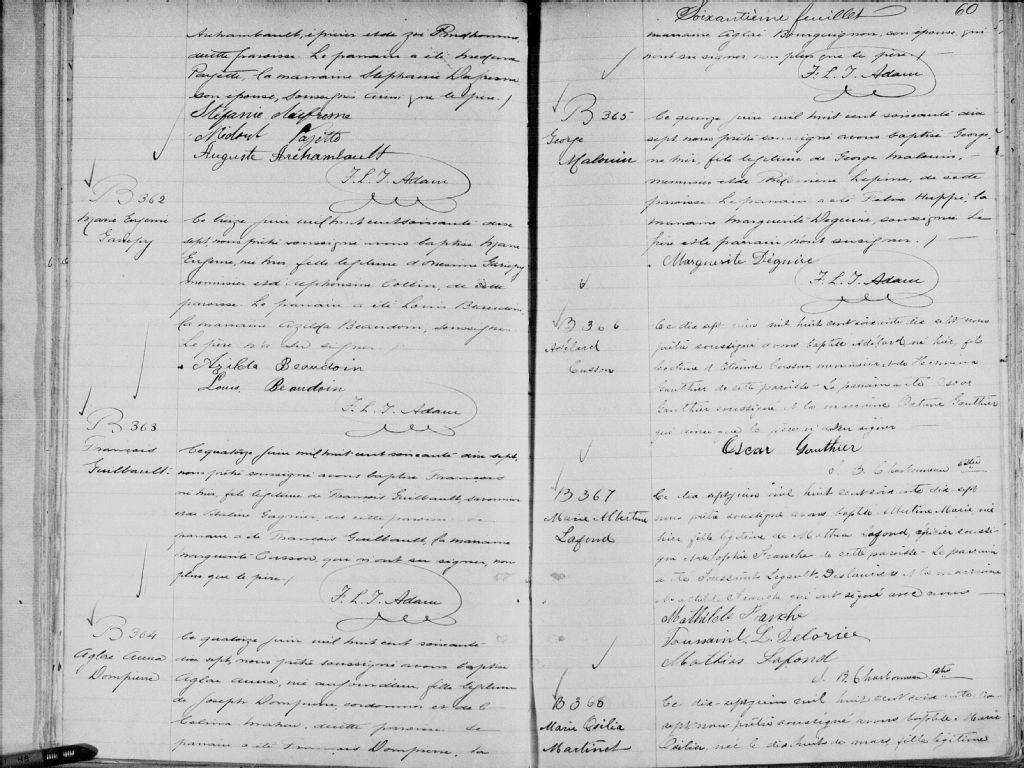 Archambault, épicier et de Zoé Prudhomme
de cette paroisse. Le parrain a été Médéric
Payette, la marraine Stéphanie Dufresne
son épouse, soussignés ainsi que le père./
Stéfanie dufresne
Médout Pajette
Auguste Archambault
F. L. T. Adam
B 362
Marie Eugenie
Gariepy
Ce treize juin mil huit cent soixante-dix-
sept, nous prêtre soussigné avons baptisé Marie
Eugenie, née hier, fille legitime d'Onesime Gariepy
menuisier et d'Euphrosine Collin, de cette
paroisse. Le parrain a été Louis Beaudoin,
la marraine Azilda Beaudoin, soussignés.
Le père n'a su signer./
Azilda Beaudoin
Louis Beaudoin
F. L. T. Adam
B 363
François
Guilbault
Le quatorze juin mil huit cent soixante-dix-sept,
nous prêtre soussigné avons baptisé François
né hier, fils legitime de François Guilbault,
et de Gagnier, de cette paroisse. Le
parrain a été François Guilbault, la marraine
Marguerite Cusson, qui n'ont su signer, non
plus que le père./
F. L. T. Adam
B 364
Aglae Anna
Dompierre
Le quatorze juin mil huit cent soixante-
dix-sept, nous prêtre soussigné avons baptisé
Aglae Anna, née aujourd'hui, fille legitime
de Joseph Dompierre, cordonnier et de
Celina Maheu, de cette paroisse. Le
parrain a été François Dompierre, la
Soixantième feuillet 60
marraine Aglaé Bourguignon, son épouse, qui
n'ont su signer non plus que le père./
F. L. T. Adam
B 365
George
Malouin
Le quinze juin mil huit cent soixante-dix-
sept nous prêtre soussigné avons baptisé George,
né hier, fils legitime de George Malouin,
menuisier et de Philomène Lepine, de cette
paroisse. Le parrain a été Felix Huppé, la
marraine Marguerite Deguire, soussignée. Le
père et le parrain n'ont su signer./
Marguerite Déguire
F. L. T. Adam
B 366
Adélard
Cusson
Le dix sept juin mil huit cent soixante dix sept nous
prêtre soussigné avons baptisé Adélard né hier, fils
légitime d'Etienne Cusson menuisier & de Hermina
Gauthier de cette paroisse - Le parrain a été Oscar
Gauthier soussigné & la marraine Gauthier
qui ainsi que le père n'a su signer
Oscar Gauthier
J. B. Charbonneau Ptre
B 367
Marie Albertine
Lafond
Le dix sept juin mil huit cent soixante dix sept
nous prêtre soussigné avons baptisé Albertine Marie née
hier, fille légitime de Mathias Lafond, épicier soussi-
gné & de Sophie Franche de cette paroisse - Le parrain
a été Toussaint Legault Deslauriers & la marraine
Mathilde Franche qui ont signé avec nous
Mathilde Franche
Toussaint L. Delorier
Mathias Lafond
J. B. Charbonneau Ptre
B 368
Marie Osilia
Martinet
Le dix-sept juin mil huit cent soixante dix
sept nous prêtre soussigné avons baptisé Marie
Osilia, née le dix-huit de mars, fille légitime